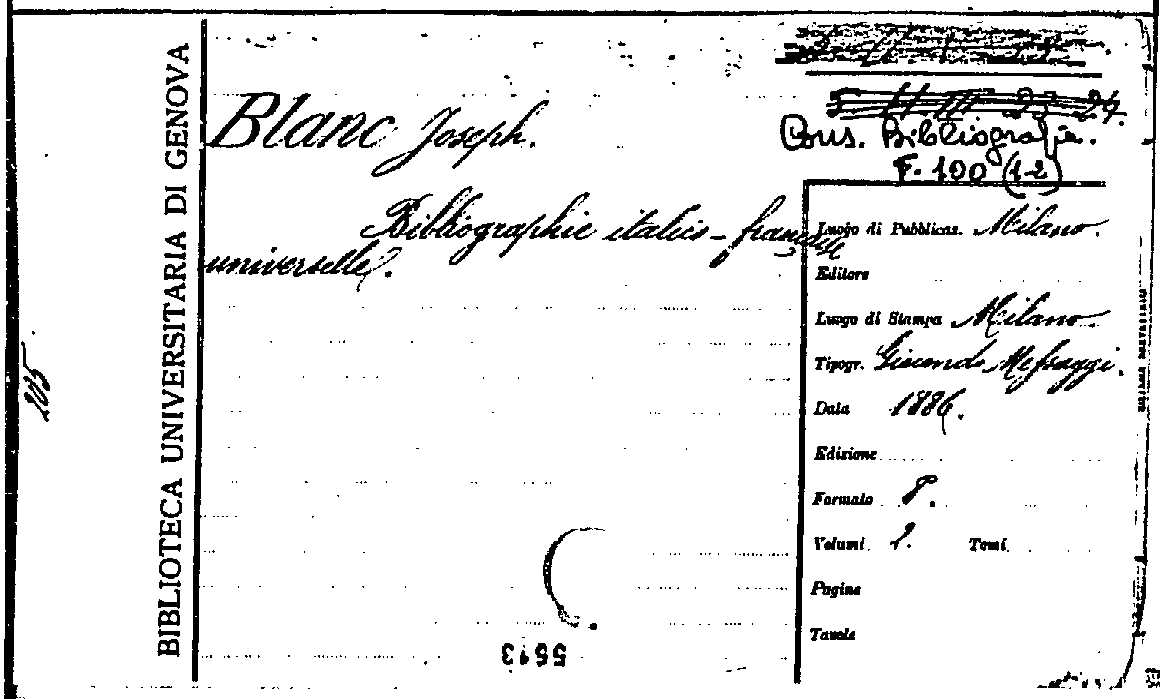 BIBLIOTECA UNIVERSITARIA DI GENOVA
205
F. H III 23 24.
Cons. Bibliografie.
F. 100 (1-2)
Blanc Joseph.
Bibliographie italico-française
universelle.
Luogo di Pubblicaz. Milano.
Editore
Luogo di Stampa Milano.
Tipogr. Giacondo Messaggi.
Data 1886.
Edizione
Formato 8.
Volumi 2. Tomi
Pagine
Tavole